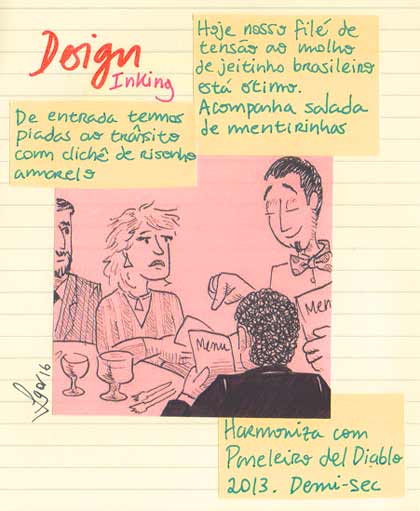 Design
Inking
De entrada temos
piadas ao trânsito
com clichê de risonho
amarelo
Hoje nosso filé de
tensão ao molho
de jeitinho brasileiro
está ótimo.
Acompanha salada
de mentirinhas
Menu
Menu
Harmoniza com
Paneleiro del Diablo
2013. Demi-sec